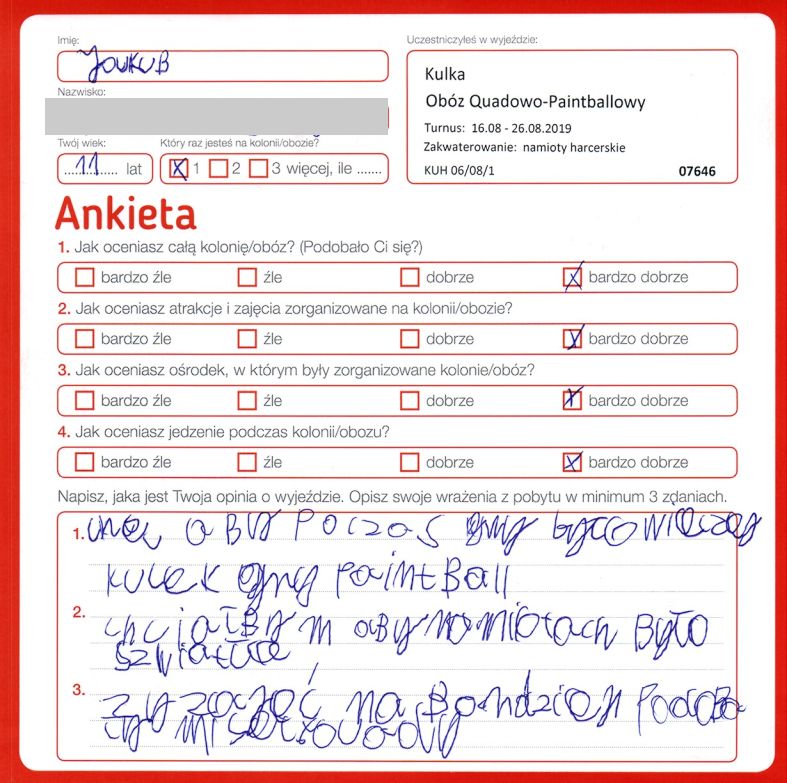 Imię:
Uczestniczyłeś w wyjeździe:
Jakub
Kulka
Obóz Quadowo-Paintballowy
Turnus: 16.08 - 26.08.2019
Zakwaterowanie: namioty harcerskie
KUH 06/08/1 07646
Nazwisko:
Twój wiek:
Który raz jesteś na kolonii/obozie?
11 lat
X 1 2 3 więcej, ile .......
Ankieta
1. Jak oceniasz całą kolonię/obóz? (Podobało Ci się?)
bardzo źle źle dobrze X bardzo dobrze
2. Jak oceniasz atrakcje i zajęcia zorganizowane na kolonii/obozie?
bardzo źle źle dobrze X bardzo dobrze
3. Jak oceniasz ośrodek, w którym były zorganizowane kolonie/obóz?
bardzo źle źle dobrze X bardzo dobrze
4. Jak oceniasz jedzenie podczas kolonii/obozu?
bardzo źle źle dobrze X bardzo dobrze
Napisz, jaka jest Twoja opinia o wyjeździe. Opisz swoje wrażenia z pobytu w minimum 3 zdaniach.
1. aBy Poczas gry było więcej
kulek gry PaintBall
2. chciałBym aBy na miotach Było
szwiatłe
3. na Bardziej Podoba
mi